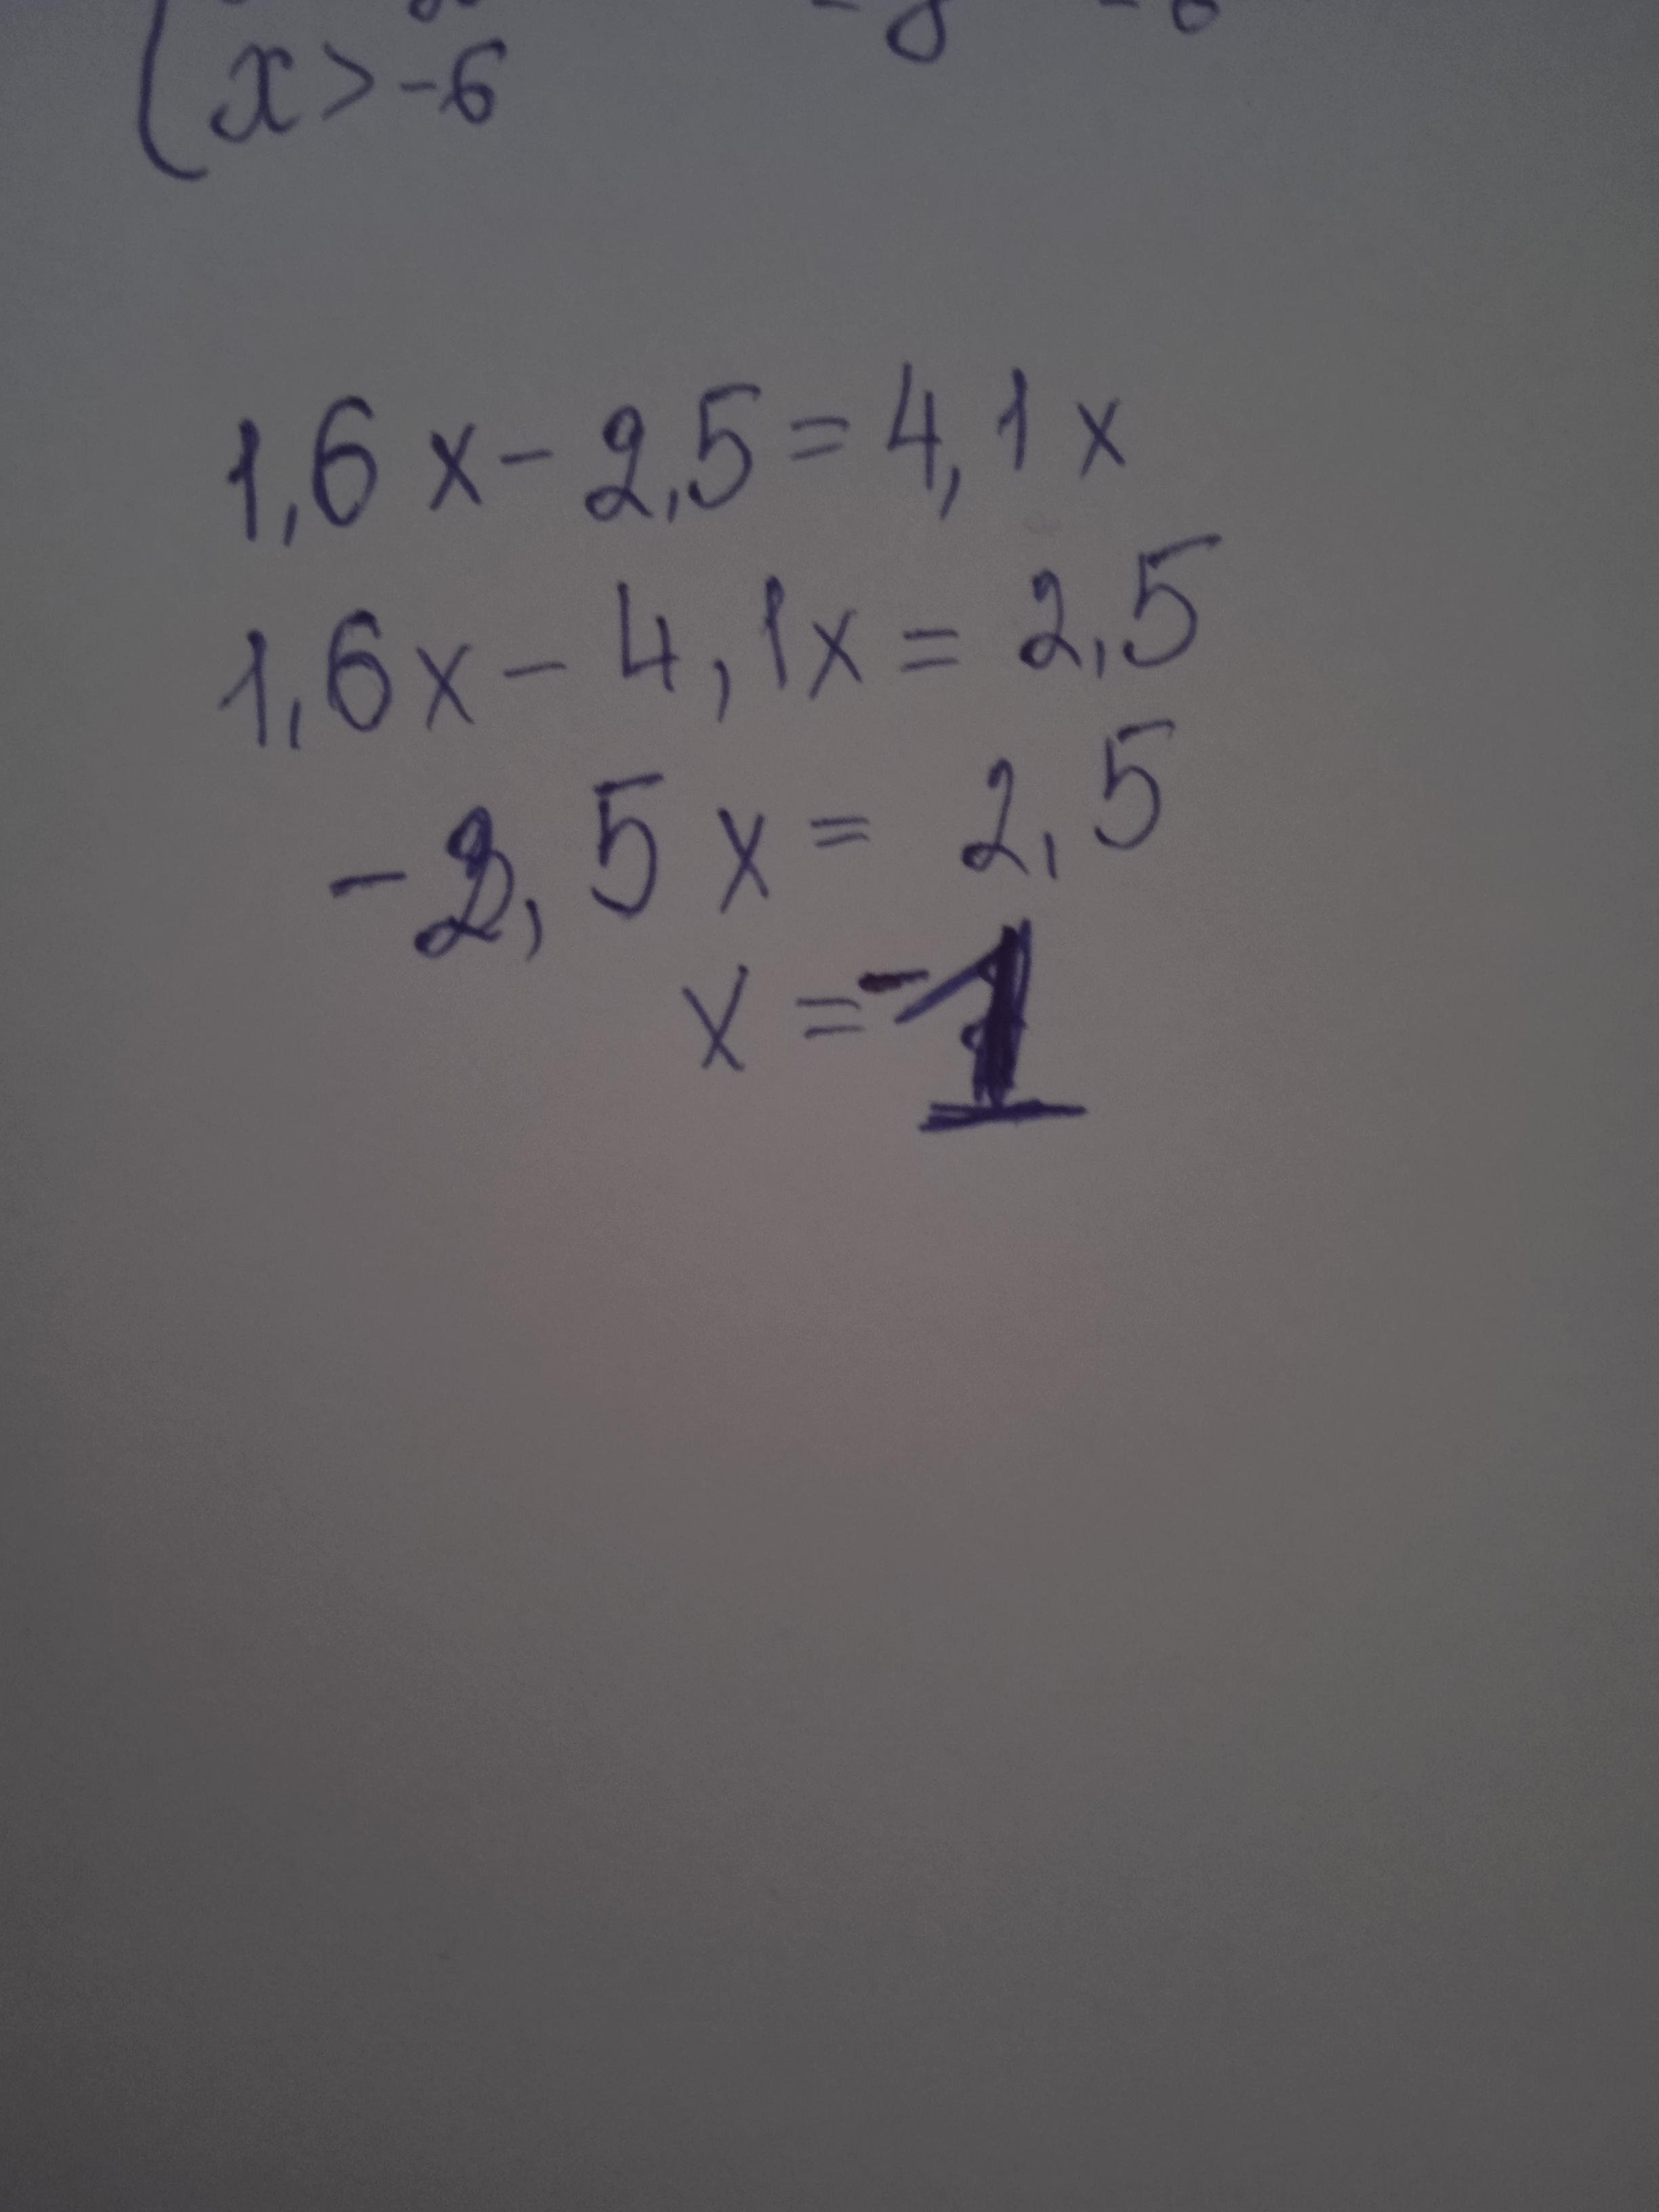 x > -6
1,6 x - 2,5 = 4,1 x
1,6 x - 4,1 x = 2,5
-2,5 x = 2,5
x = -1